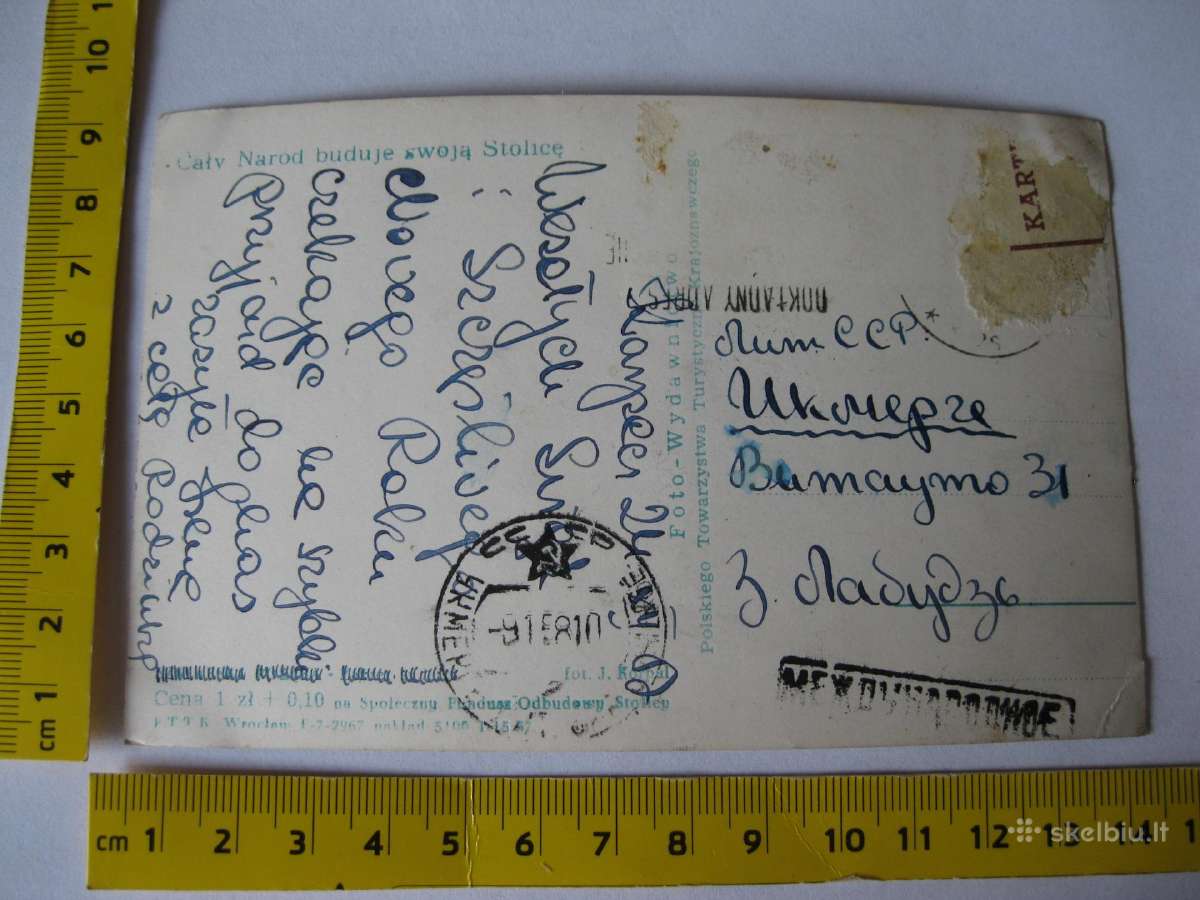 Cały Naród buduje swoją Stolicę
Wesołych Świąt
i Szczęśliwego
Nowego Roku
czekając na szybki
Przyjazd do nas
z całą Rodziną
Foto-Wydawnictwo
Polskiego Towarzystwa Turystyczno-Krajoznawczego
fot. J. Korpal
Cena 1 zł + 0,10 na Społeczny Fundusz Odbudowy Stolicy
KART
DOKŁADNY ADRES
Лит ССР.
Икмерге
Витауто 31
З. Лабудзь
СССР
УКМЕРГЕ
-9 1 58 10
МЕЖДУНАРОДНОЕ
cm 1 2 3 4 5 6 7 8 9 10 11
cm 1 2 3 4 5 6 7 8 9 10 11 12 13 14
skelbiu.lt